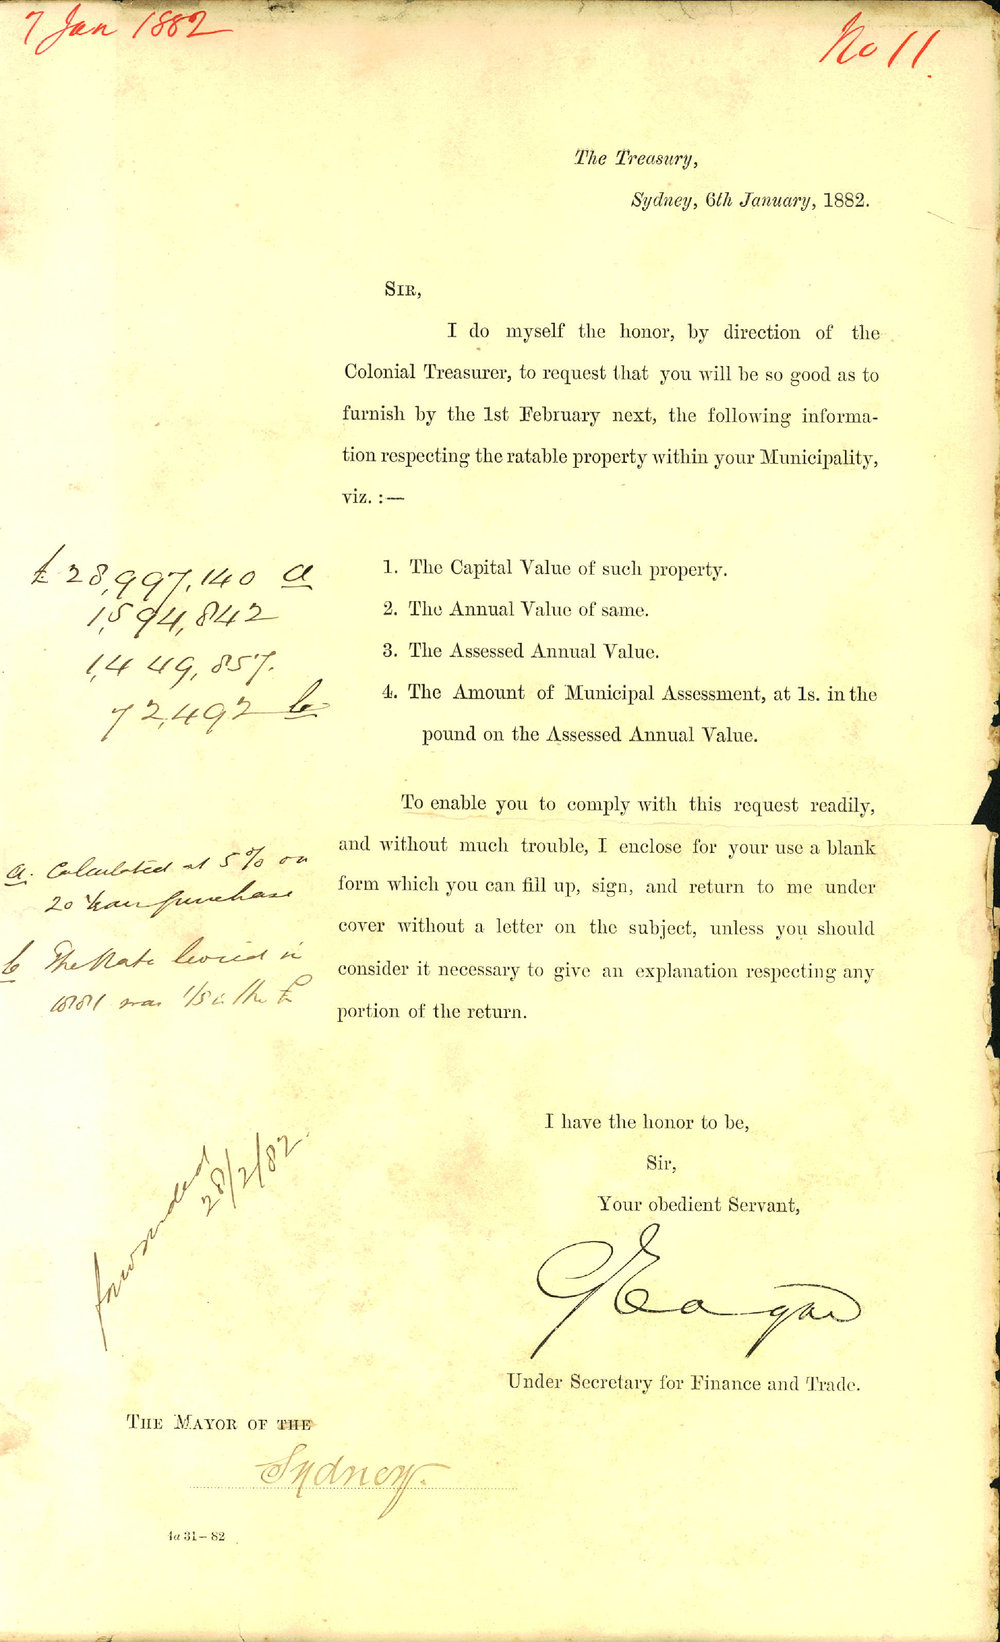 7 Jan 1882
No 11.
The Treasury,
Sydney, 6th January, 1882.
SIR,
I do myself the honor, by direction of the
Colonial Treasurer, to request that you will be so good as to
furnish by the 1st February next, the following informa-
tion respecting the ratable property within your Municipality,
viz. :—
£28,997,140 a
1. The Capital Value of such property.
1,594,842
2. The Annual Value of same.
1,449,857.
3. The Assessed Annual Value.
72,492 b
4. The Amount of Municipal Assessment, at 1s. in the
pound on the Assessed Annual Value.
To enable you to comply with this request readily,
and without much trouble, I enclose for your use a blank
form which you can fill up, sign, and return to me under
cover without a letter on the subject, unless you should
consider it necessary to give an explanation respecting any
portion of the return.
a. Calculated at 5% on
20 Years purchase
b The Rate levied in
1881 was 1/5 in the £
I have the honor to be,
Sir,
Your obedient Servant,
G Eagar
Under Secretary for Finance and Trade.
forwarded
28/2/82.
THE MAYOR OF THE
Sydney.
4a 31—82